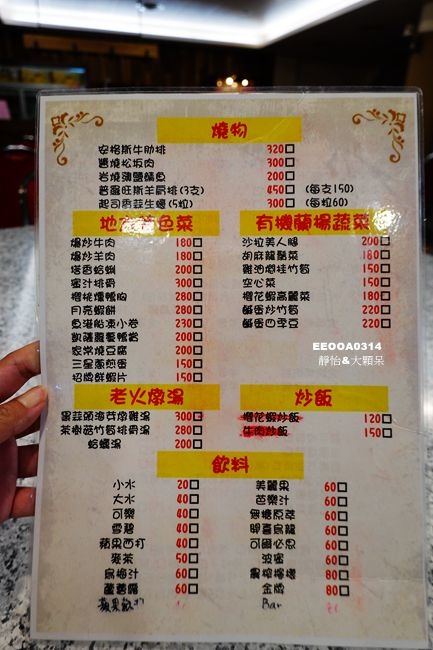 燒物
安格斯牛肋排 320
鹽燒松坂肉 300
岩燒薄鹽鯖魚 200
普羅旺斯羊肩排(3支) 450 (每支150)
起司香蒜生蠔(5粒) 300 (每粒60)
地方特色菜
爆炒牛肉 180
爆炒羊肉 180
塔香蛤蜊 200
蜜汁排骨 300
櫻桃燻鴨胸 280
月亮蝦餅 280
魚港船凍小卷 230
凱薩
家常燒豆腐 200
三星蔥煎蛋 150
招牌鮮蝦片 150
有機蘭楊蔬菜
沙拉美人腿 200
胡麻龍鬚菜 180
雞油燜桂竹筍 150
空心菜 150
櫻花蝦高麗菜 180
鹹蛋炒竹筍 220
鹹蛋四季豆 220
EEOOA0314
靜怡&大顆呆
老火燉湯
黑蒜頭海菜燉雞湯 300
茶樹菇竹筍排骨湯 280
蛤蠣湯 200
炒飯
櫻花蝦炒飯 120
牛肉炒飯 150
飲料
小水 20
大水 40
可樂 40
雪碧 40
蘋果西打 40
麥茶 50
烏梅汁 60
蘆薈露 60
美麗果 60
芭樂汁 60
無糖原萃 60
開喜烏龍 60
可爾必思 60
波蜜 60
黑檸檬 80
金牌 80
Bar